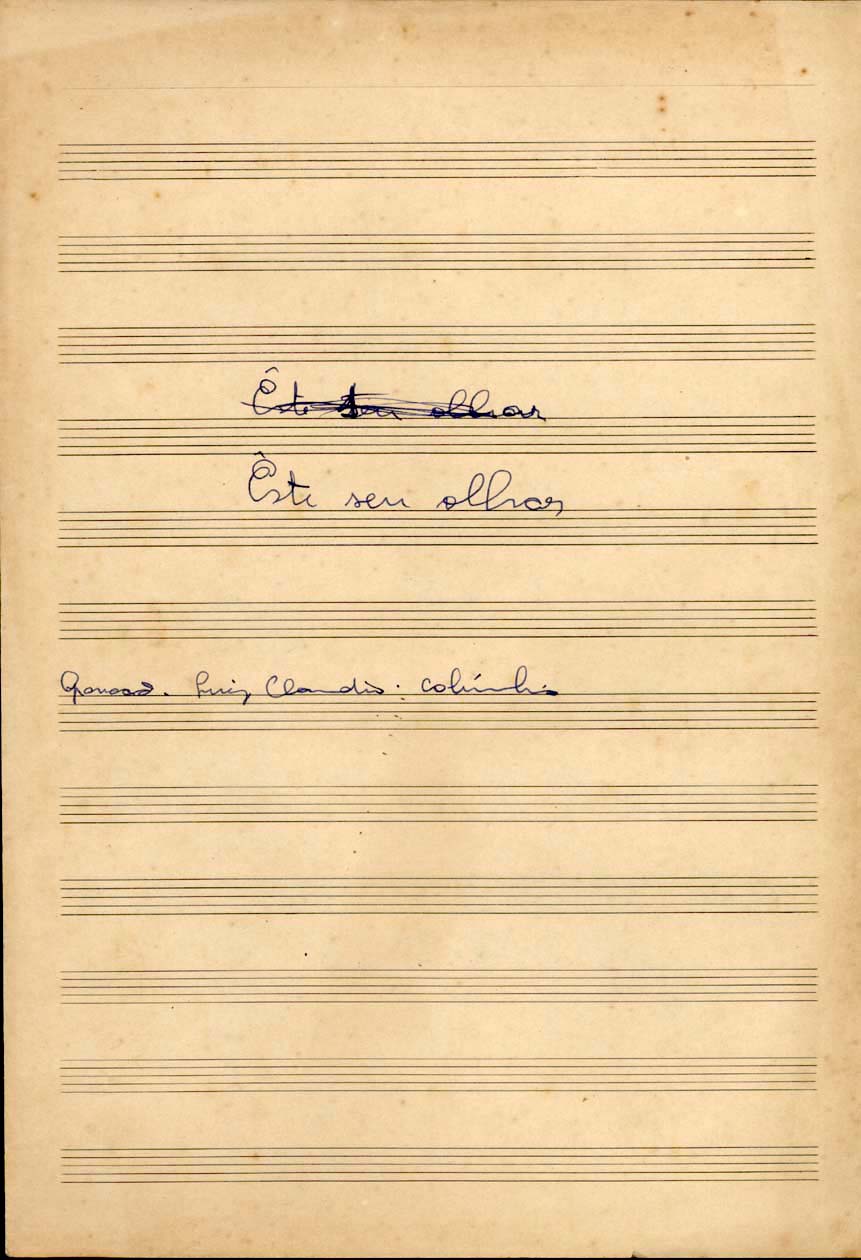 Êste seu olhar
Êste seu olhar
Luiz Claudio.